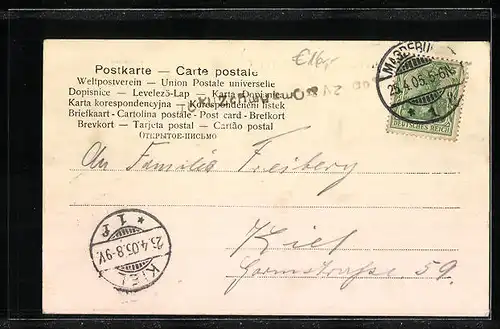 Postkarte — Carte postale
Weltpostverein — Union Postale universelle
Dopisnice — Levelező-Lap — Karta Dopisnica
Karta korespondencyjna — Korespondenční lístek
Briefkaart - Cartolina postale - Post card - Brefkort
Brevkort — Tarjeta postal — Cartão postal
ОТКРЫТОЕ-ПИСЬМО
MAGDEBURG
25.4.05.5-6N.
* 1
DEUTSCHES REICH
An Familie Freiberg
Kiel
59.
KIEL
25.4.05.8-9V.
* 1 f